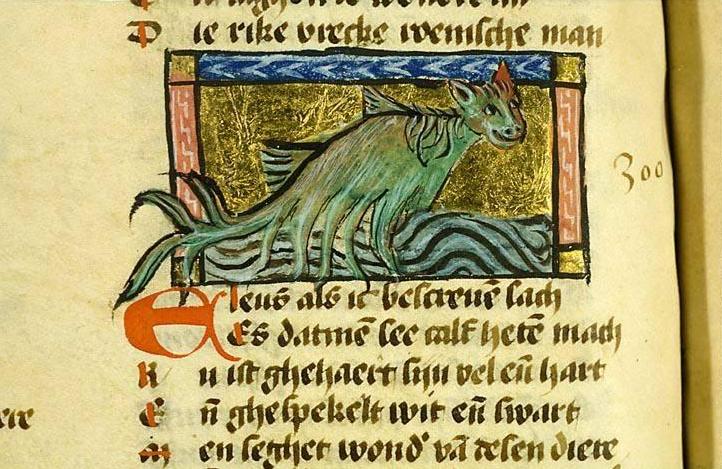 Die rike vrecke wenische man
300
Elcus als ic bescreuē sach
Es datmē see calf hetē mach
Ru ist ghehaert sijn vel eñ hart
Eñ ghespekelt wit eñ swart
Men seghet wond' vā desen diere